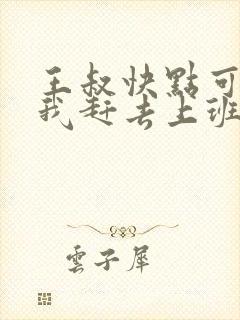 王叔快點可
我赶去上班
雲子犀